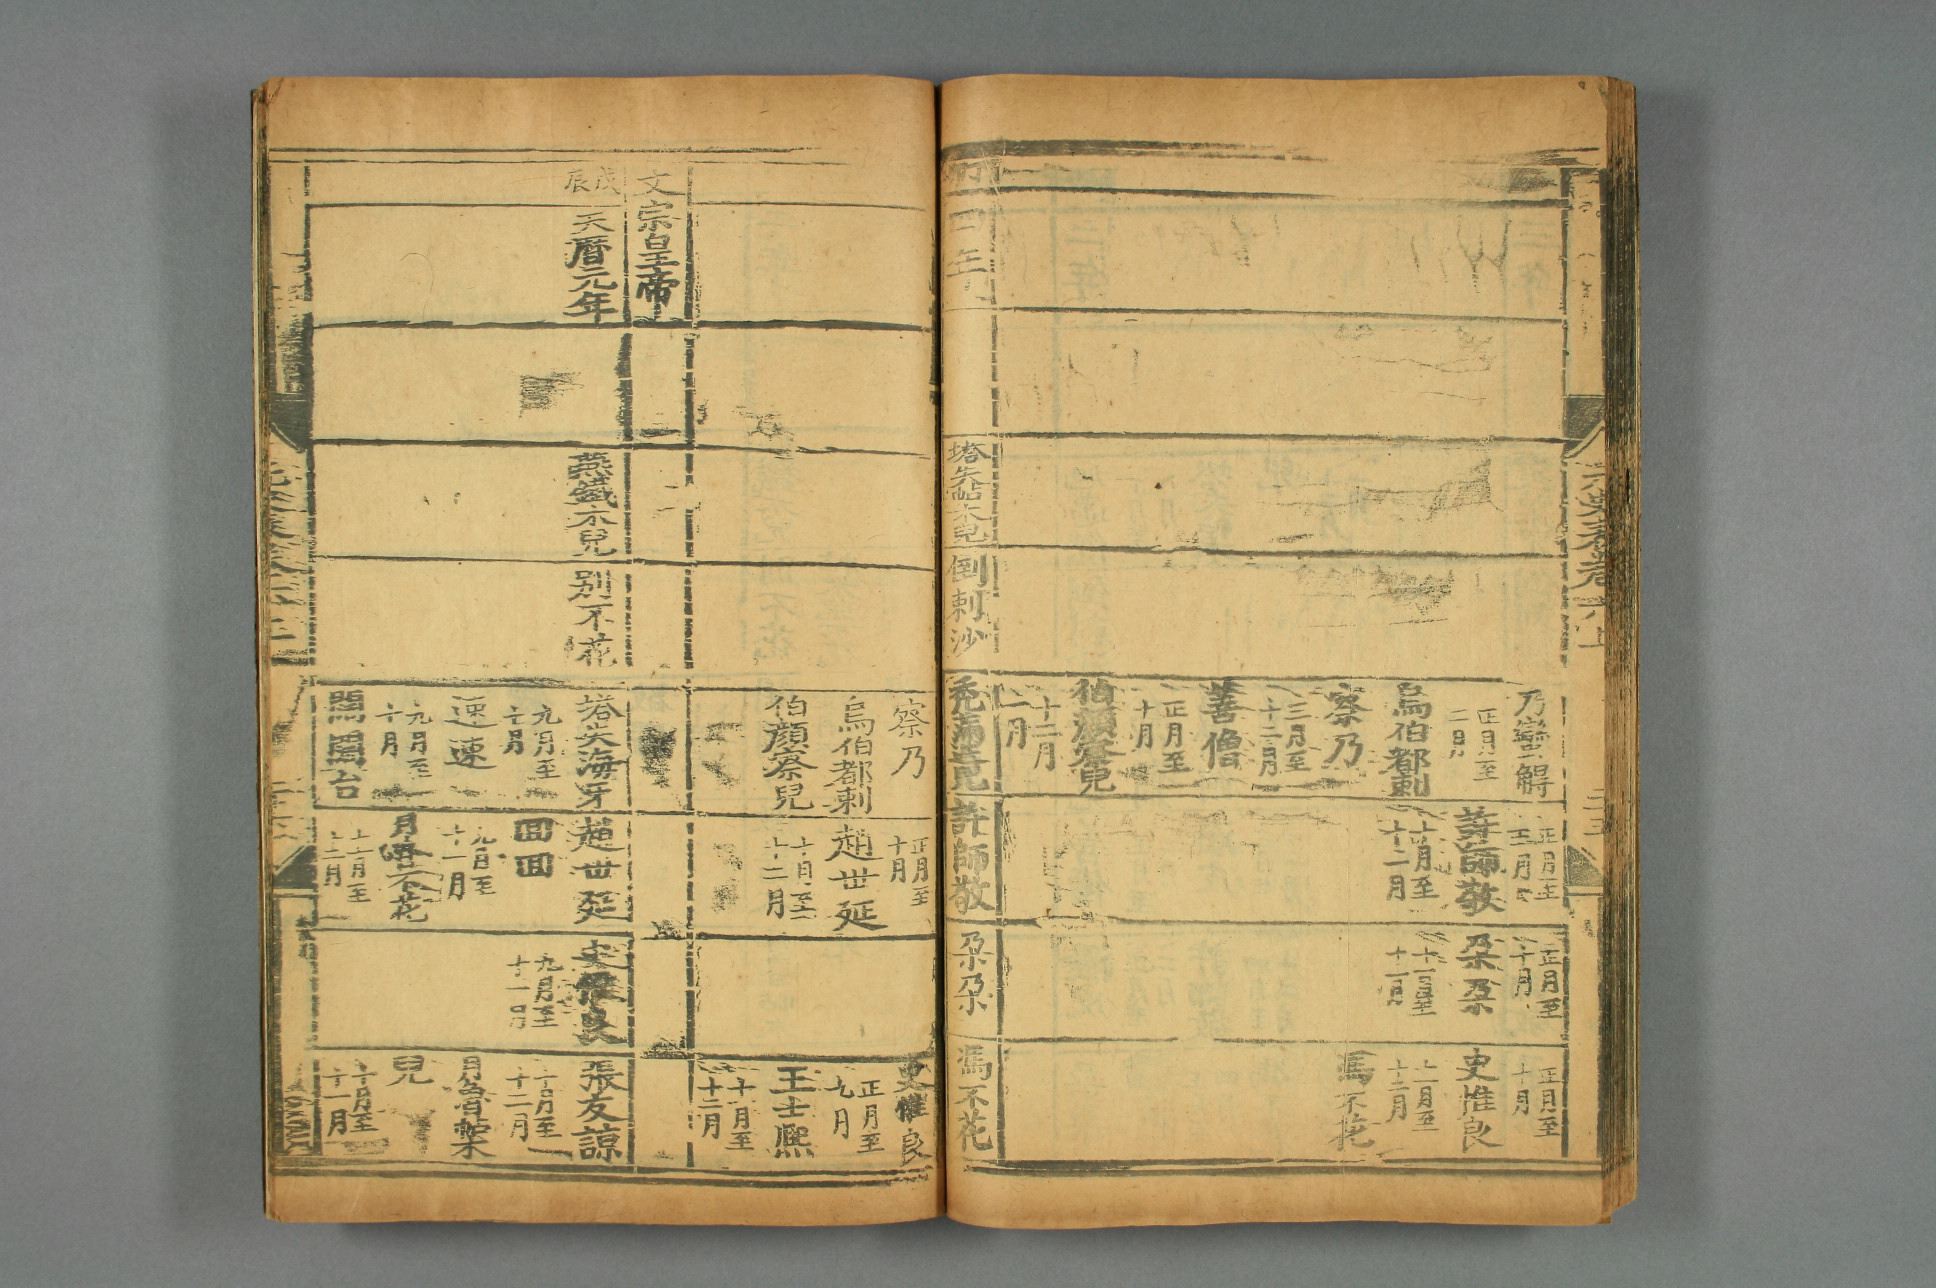 乃蠻解
正月至
二月
烏伯都剌
察乃
三月至
十二月
善僧
正月至
十月
伯顏察兒
十二月
正月至
許師敬
十月至
十二月
正月至
十月
朵朵
十一月
正月至
十月
史惟良
十二月
馮不花
四年
塔失帖木兒
倒剌沙
禿滿迭兒
許師敬
朵朵
馮不花
察乃
烏伯都剌
伯顏察兒
正月至
十月
趙世延
十月至
十二月
史惟良
正月至
九月
王士熙
十月至
十二月
文宗皇帝
戊辰
天曆元年
燕鐵木兒
別不花
塔失海牙
九月至
十月
速速
九月至
十月
闊闊台
趙世延
回回
九月至
十一月
月魯不花
十一月至
十二月
史惟良
九月至
十一月
張友諒
十月至
十二月
月魯帖木
兒
十月至
十一月